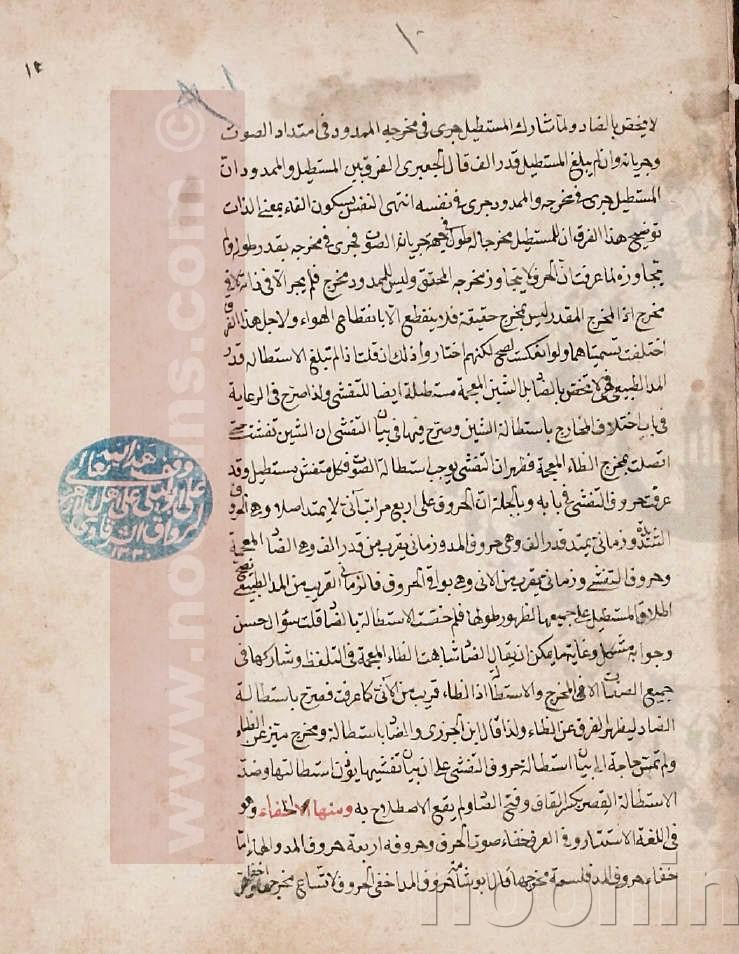 ١٠
١٢
لا يختص بالضاد ولما شارك المستطيل جرى في مخرجه الممدود في امتداد الصوت
وجريانه وان لم يبلغ المستطيل قدر الف قال الجعبرى الفرق بين المستطيل والممدود ان
المستطيل جرى في مخرجه والممدود جرى في نفسه انتهى النفس بسكون الفاء بمعنى الذات
توضيح هذا الفرق ان للمستطيل مخرجا له طول في جهة جريان الصوت فجرى في مخرجه بقدر طوله ولم
يتجاوزه لما عرفت ان الحرف لا يتجاوز مخرجه المحقق وليس للممدود مخرج فلم يجر الا في ذاته لا في
مخرج اذ المخرج المقدر ليس بمخرج حقيقة فلا ينقطع الا بانقطاع الهواء ولاجل هذا الفرق
اختلفت تسميتاهما ولو انعكست لصح لكنهم اختاروا ذلك ان قلت اذا لم تبلغ الاستطالة قدر
المد الطبيعي فهى لا تختص بالضاد بل الشين المعجمة مستطيلة ايضا للتفشى ولذا صرح في الرعاية
في باب اختلاف المخارج باستطالة الشين وصرح فيها في بيان التفشى ان الشين تفشت حتى
اتصلت بمخرج الظاء المعجمة فظهر ان التفشى يوجب استطالة الصوت فكل متفش مستطيل وقد
عرفت حروف التفشى في بابه وبالجملة ان الحروف على اربع مراتب آنى لا يمتد اصلا وهى الحروف
الشديدة وزمانى يمتد قدر الف وهى حروف المد وزمانى يقرب من قدر الف وهى الضاد المعجمة
وحروف التفشى وزمانى يقرب من الآنى وهى بواقى الحروف فالزمانى القريب من المد الطبيعى يصح
اطلاق المستطيل على جميعها لظهور طولها فلم خصت الاستطالة بالضاد قلت سؤال حسن
وجوابه مشكل وغاية ما يمكن ان يقال الضاد شابهت الظاء المعجمة في التلفظ وشاركها في
جميع الصفات الا في المخرج والاستطالة اذ الظاء قريب من الآنى كما عرفت فصرح باستطالة
الضاد ليظهر الفرق عن الظاء ولذا قال ابن الجزرى والضاد باستطالة ومخرج ميز عن الظاء
ولم تمس حاجة الى بيان استطالة حروف التفشى على ان بيان تفشيها يؤذن استطالتها وضد
الاستطالة القصر بكسر القاف وفتح الصاد ولم يقع الاصطلاح به ومنها الاخفاء وهو
في اللغة الاستتار وفي العرف خفاء صوت الحرف وحروفه اربعة حروف المد والهاء اما
خفاء حروف المد فلسعة مخرجها قال ابو شامة حروف المد اخفى الحروف لاتساع مخرجها
وقف هذا
لله تعالى
على اهل
الرواق
١٣٣٠
www.noorlins.com ©
noorlin